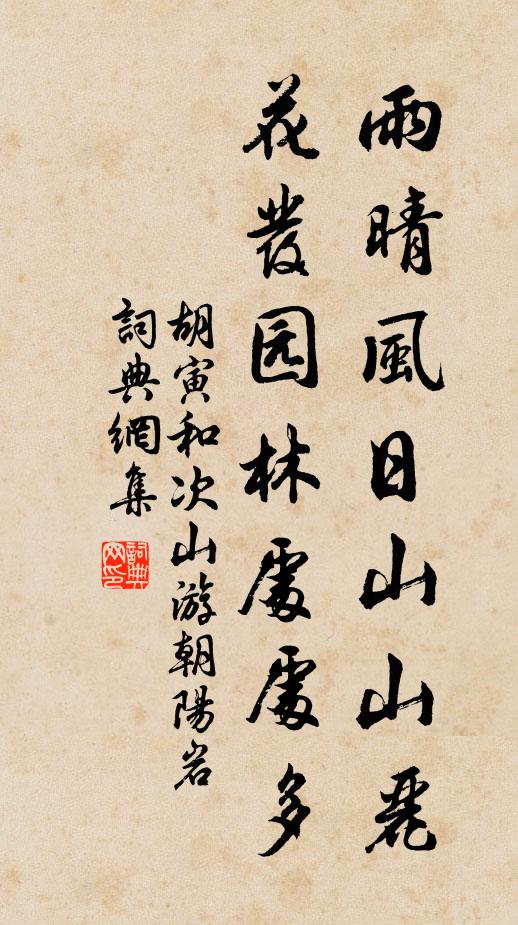 雨晴風日山山麗
花發园林處處多
胡寅和次山游朝陽岩
詞典網集
詞典网印